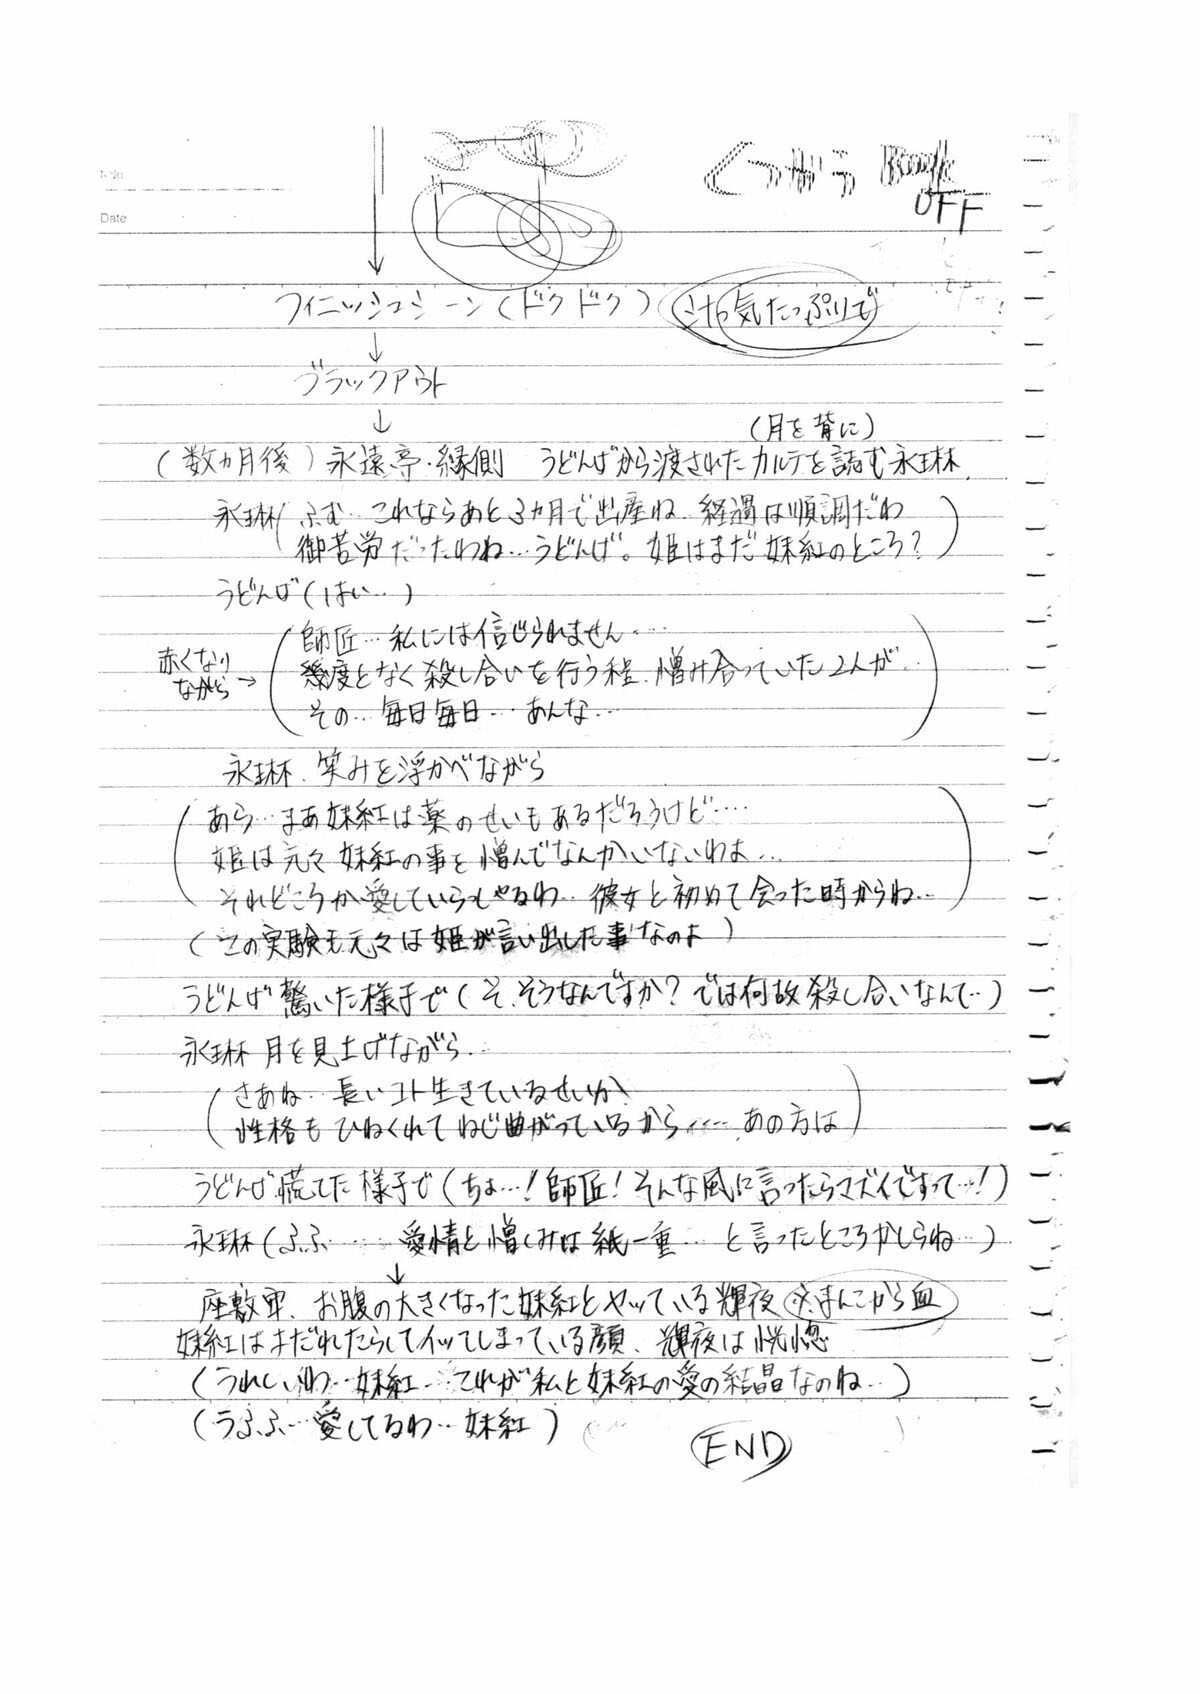 No.
Date
OFF
フィニッシュシーン(ドクドク) 汁っ気たっぷりで
↓
ブラックアウト
↓
(月を背に)
(数ヵ月後)永遠亭・縁側 うどんげから渡されたカルテを読む永琳
永琳(ふむ…これならあと3ヵ月で出産ね 経過は順調だわ
御苦労だったわね…うどんげ。姫はまだ妹紅のところ?)
うどんげ(はい…)
赤くなり
ながら→
(師匠…私には信じられません…
幾度となく殺し合いを行う程、憎み合っていた2人が…
その…毎日毎日…あんな…)
永琳、笑みを浮かべながら
(あら…まあ妹紅は薬のせいもあるだろうけど…
姫は元々妹紅の事を憎んでなんかいないわよ…
それどころか愛していらっしゃるわ…彼女と初めて会った時からね…)
(この実験も元々は姫が言い出した事なのよ)
うどんげ驚いた様子で(そ、そうなんですか?では何故殺し合いなんて…)
永琳 月を見上げながら…
(さあね…長いコト生きているせいか
性格もひねくれてねじ曲がっているから……あの方は)
うどんげ慌てた様子で(ちょ…!師匠!そんな風に言ったらマズイですって…!)
永琳(ふふ……愛情と憎しみは紙一重…と言ったところかしらね…)
↓
座敷牢、お腹の大きくなった妹紅とヤッている輝夜 ※まんこから血
妹紅はよだれたらしてイッてしまっている顔、輝夜は恍惚
(うれしいわ…妹紅…これが私と妹紅の愛の結晶なのね…)
(うふふ…愛してるわ…妹紅)
END